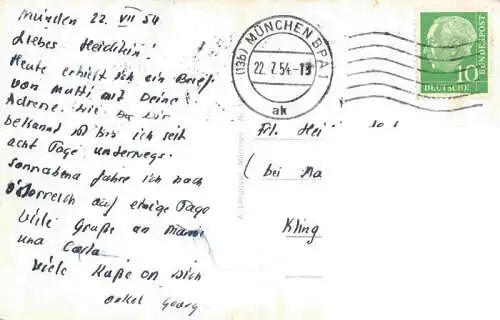 München 22. VII 54
Liebes Heidilein!
Heute erhielt ich ein Brief
von Mutti mit Deine
Adresse. wie Du Dir
bekannt ist bin ich seit
acht Tage unterwegs.
sonnabend fahre ich nach
Österreich auf einige Tage
Viele Grüße an Mami
und Carla
Viele Küße an Dich
onkel Georg
(13b) MÜNCHEN BPA 1
22.7.54.-13
ak
10
DEUTSCHE
BUNDESPOST
Frl. Hei
( bei Ma
Kling
A. Lengauer, München